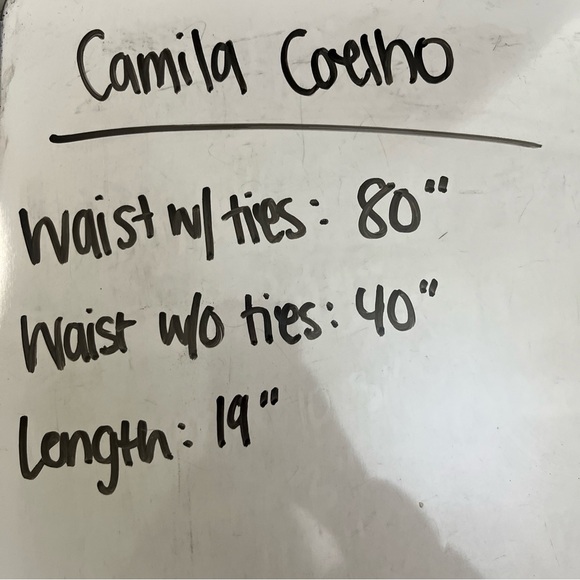 Camila Coelho
Waist w/ ties: 80"
Waist w/o ties: 40"
Length: 19"